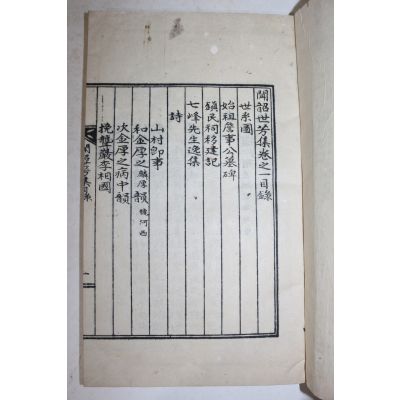 聞韶世芳集卷之一目錄
世系圖
始祖詹事公墓碑
鎭民祠移建記
七峰先生逸集
詩
山村卽事
和金厚之麟厚韻 號河西
次金厚之病中韻
挽聾巖李相國
聞韶世芳集目錄
一